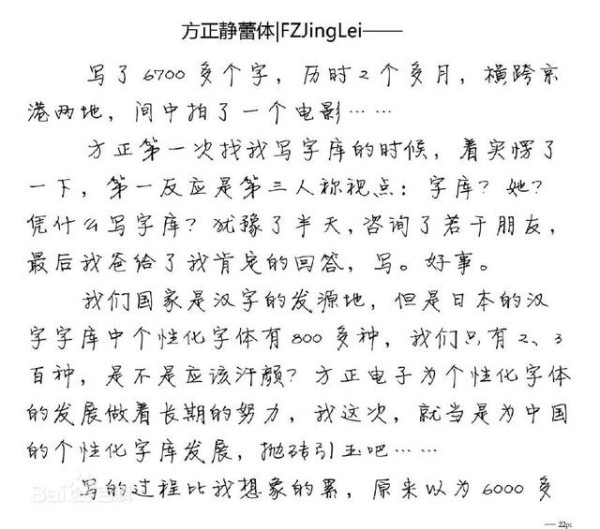 方正静蕾体|FZJingLei——
写了6700多个字，历时2个多月，横跨京
港两地，间中拍了一个电影……
方正第一次找我写字库的时候，着实愣了
一下，第一反应是第三人称视点：字库？她？
凭什么写字库？犹豫了半天，咨询了若干朋友，
最后我爸给了我肯定的回答，写。好事。
我们国家是汉字的发源地，但是日本的汉
字字库中个性化字体有800多种，我们只有2、3
百种，是不是应该汗颜？方正电子为个性化字体
的发展做着长期的努力，我这次，就当是为中国
的个性化字库发展，抛砖引玉吧……
写的过程比我想象的累，原来以为6000多
Baidu百科
— 22pt